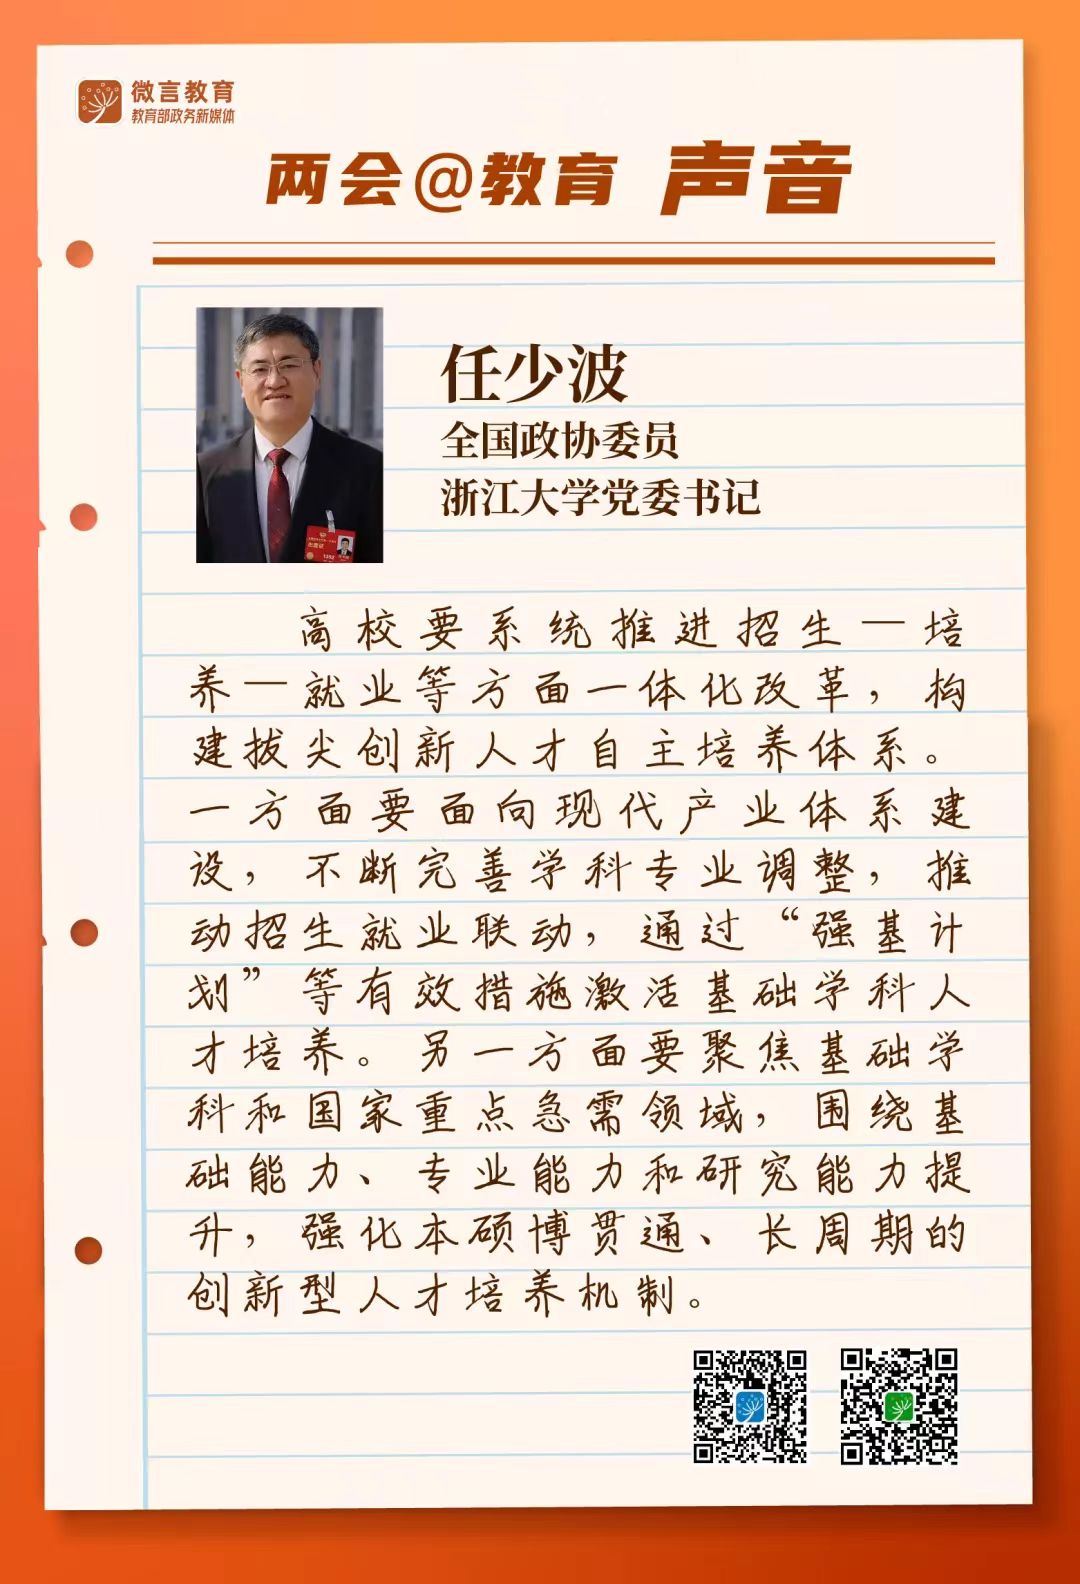 微言教育
教育部政务新媒体
两会@教育 声音
任少波
全国政协委员
浙江大学党委书记
高校要系统推进招生—培
养—就业等方面一体化改革，构
建拔尖创新人才自主培养体系。
一方面要面向现代产业体系建
设，不断完善学科专业调整，推
动招生就业联动，通过“强基计
划”等有效措施激活基础学科人
才培养。另一方面要聚焦基础学
科和国家重点急需领域，围绕基
础能力、专业能力和研究能力提
升，强化本硕博贯通、长周期的
创新型人才培养机制。